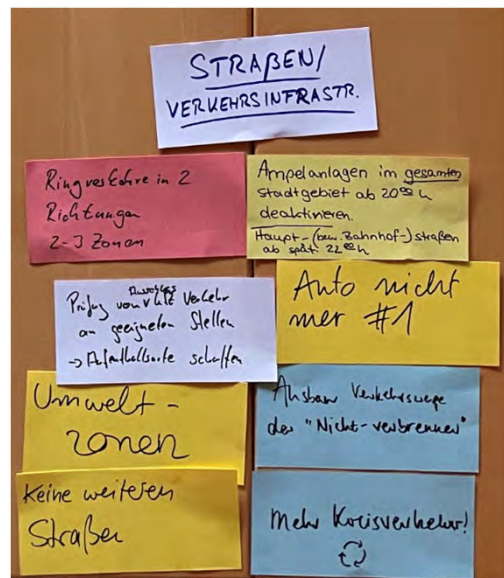 STRAßEN/
VERKEHRSINFRASTR.
Ringverkehre in 2
Richtungen
2-3 Zonen
Ampelanlagen im gesamten
Stadtgebiet ab 20⁰⁰ h
deaktivieren.
Haupt-(bzw. Bahnhof-)straßen
ab spät. 22⁰⁰ h
Prüfung von Verkehr
an geeigneten Stellen
-> Aufenthaltsorte schaffen
Auto nicht
mer #1
Umwelt-
zonen
Ausbau Verkehrswege
der "Nicht-verbrenner"
Keine weiteren
Straßen
Mehr Kreisverkehr!